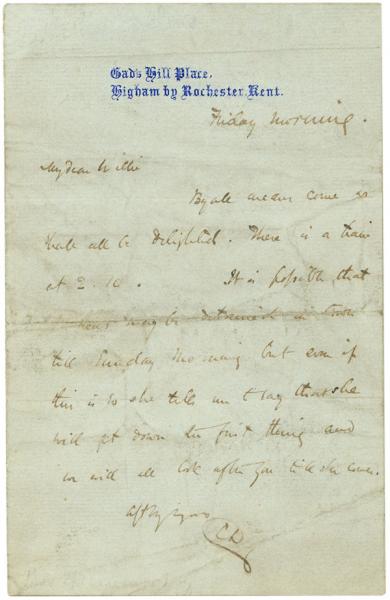 Gad's Hill Place,
Higham by Rochester, Kent.
Friday Morning.
My dear Willie
By all means come
shall all be delighted. There is a train
at 2.10. It is possible that
may be detained in town
till Sunday Morning but even if
this is so she tells me to say that she
will get down the first thing and
we will all look after you till she comes.
CD